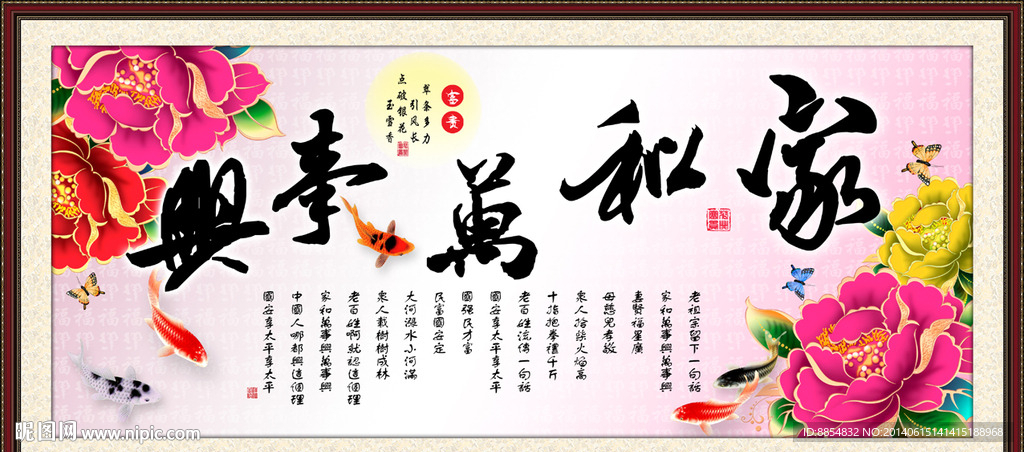 家和萬事興
富贵
翠条多力
引风长
点破银花
玉雪香
老祖宗留下一句話
家和萬事興萬事興
妻賢福星廣
母慈兒孝敬
衆人拾柴火焰高
十指抱拳禮千斤
老百姓流傳一句話
國安享太平享太平
國强民才富
民富國安定
大河漲水小河滿
衆人栽樹樹成林
老百姓啊就認這個理
家和萬事興萬事興
中國人哪都興這個理
國安享太平享太平
昵图网 www.nipic.com
ID:8854832 NO:20140615141415188968